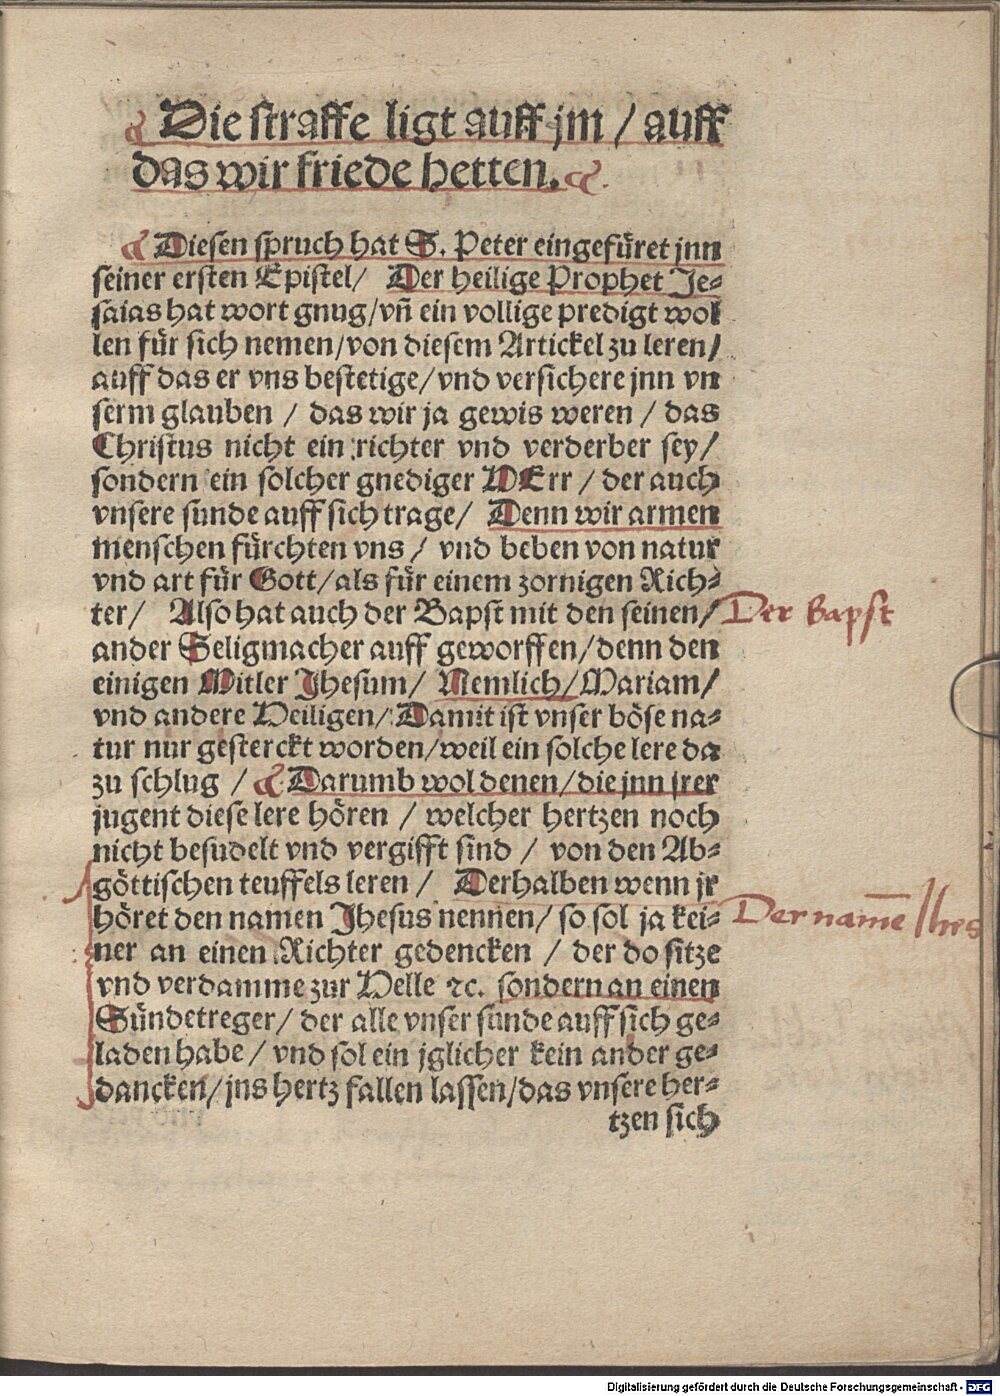 Die straffe ligt auff jm / auff
das wir friede hetten.
Diesen spruch hat S. Peter eingefüret jnn
seiner ersten Epistel/ Der heilige Prophet Je⸗
saias hat wort gnug/vñ ein vollige predigt wol
len für sich nemen/von diesem Artickel zu leren/
auff das er vns bestetige/vnd versichere jnn vn
serm glauben / das wir ja gewis weren / das
Christus nicht ein richter vnd verderber sey/
sondern ein solcher gnediger HErr / der auch
vnsere sunde auff sich trage/ Denn wir armen
menschen fürchten vns / vnd beben von natur
vnd art für Gott/als für einem zornigen Rich⸗
ter/ Also hat auch der Bapst mit den seinen/
Der Bapst
ander Seligmacher auff geworffen/denn den
einigen Mitler Jhesum/ Nemlich/Mariam/
vnd andere Heiligen/ Damit ist vnser böse na⸗
tur nur gesterckt worden/weil ein solche lere da
zu schlug / Darumb wol denen/die jnn jrer
jugent diese lere hören / welcher hertzen noch
nicht besudelt vnd vergifft sind / von den Ab⸗
göttischen teuffels leren / Derhalben wenn jr
höret den namen Jhesus nennen/ so sol ja kei⸗
Der name Ihs
ner an einen Richter gedencken / der do sitze
vnd verdamme zur Helle ⁊c. sondern an einen
Sündetreger/ der alle vnser sunde auff sich ge⸗
laden habe / vnd sol ein jglicher kein ander ge⸗
dancken/jns hertz fallen lassen/das vnsere her⸗
tzen sich
Digitalisierung gefördert durch die Deutsche Forschungsgemeinschaft - DFG